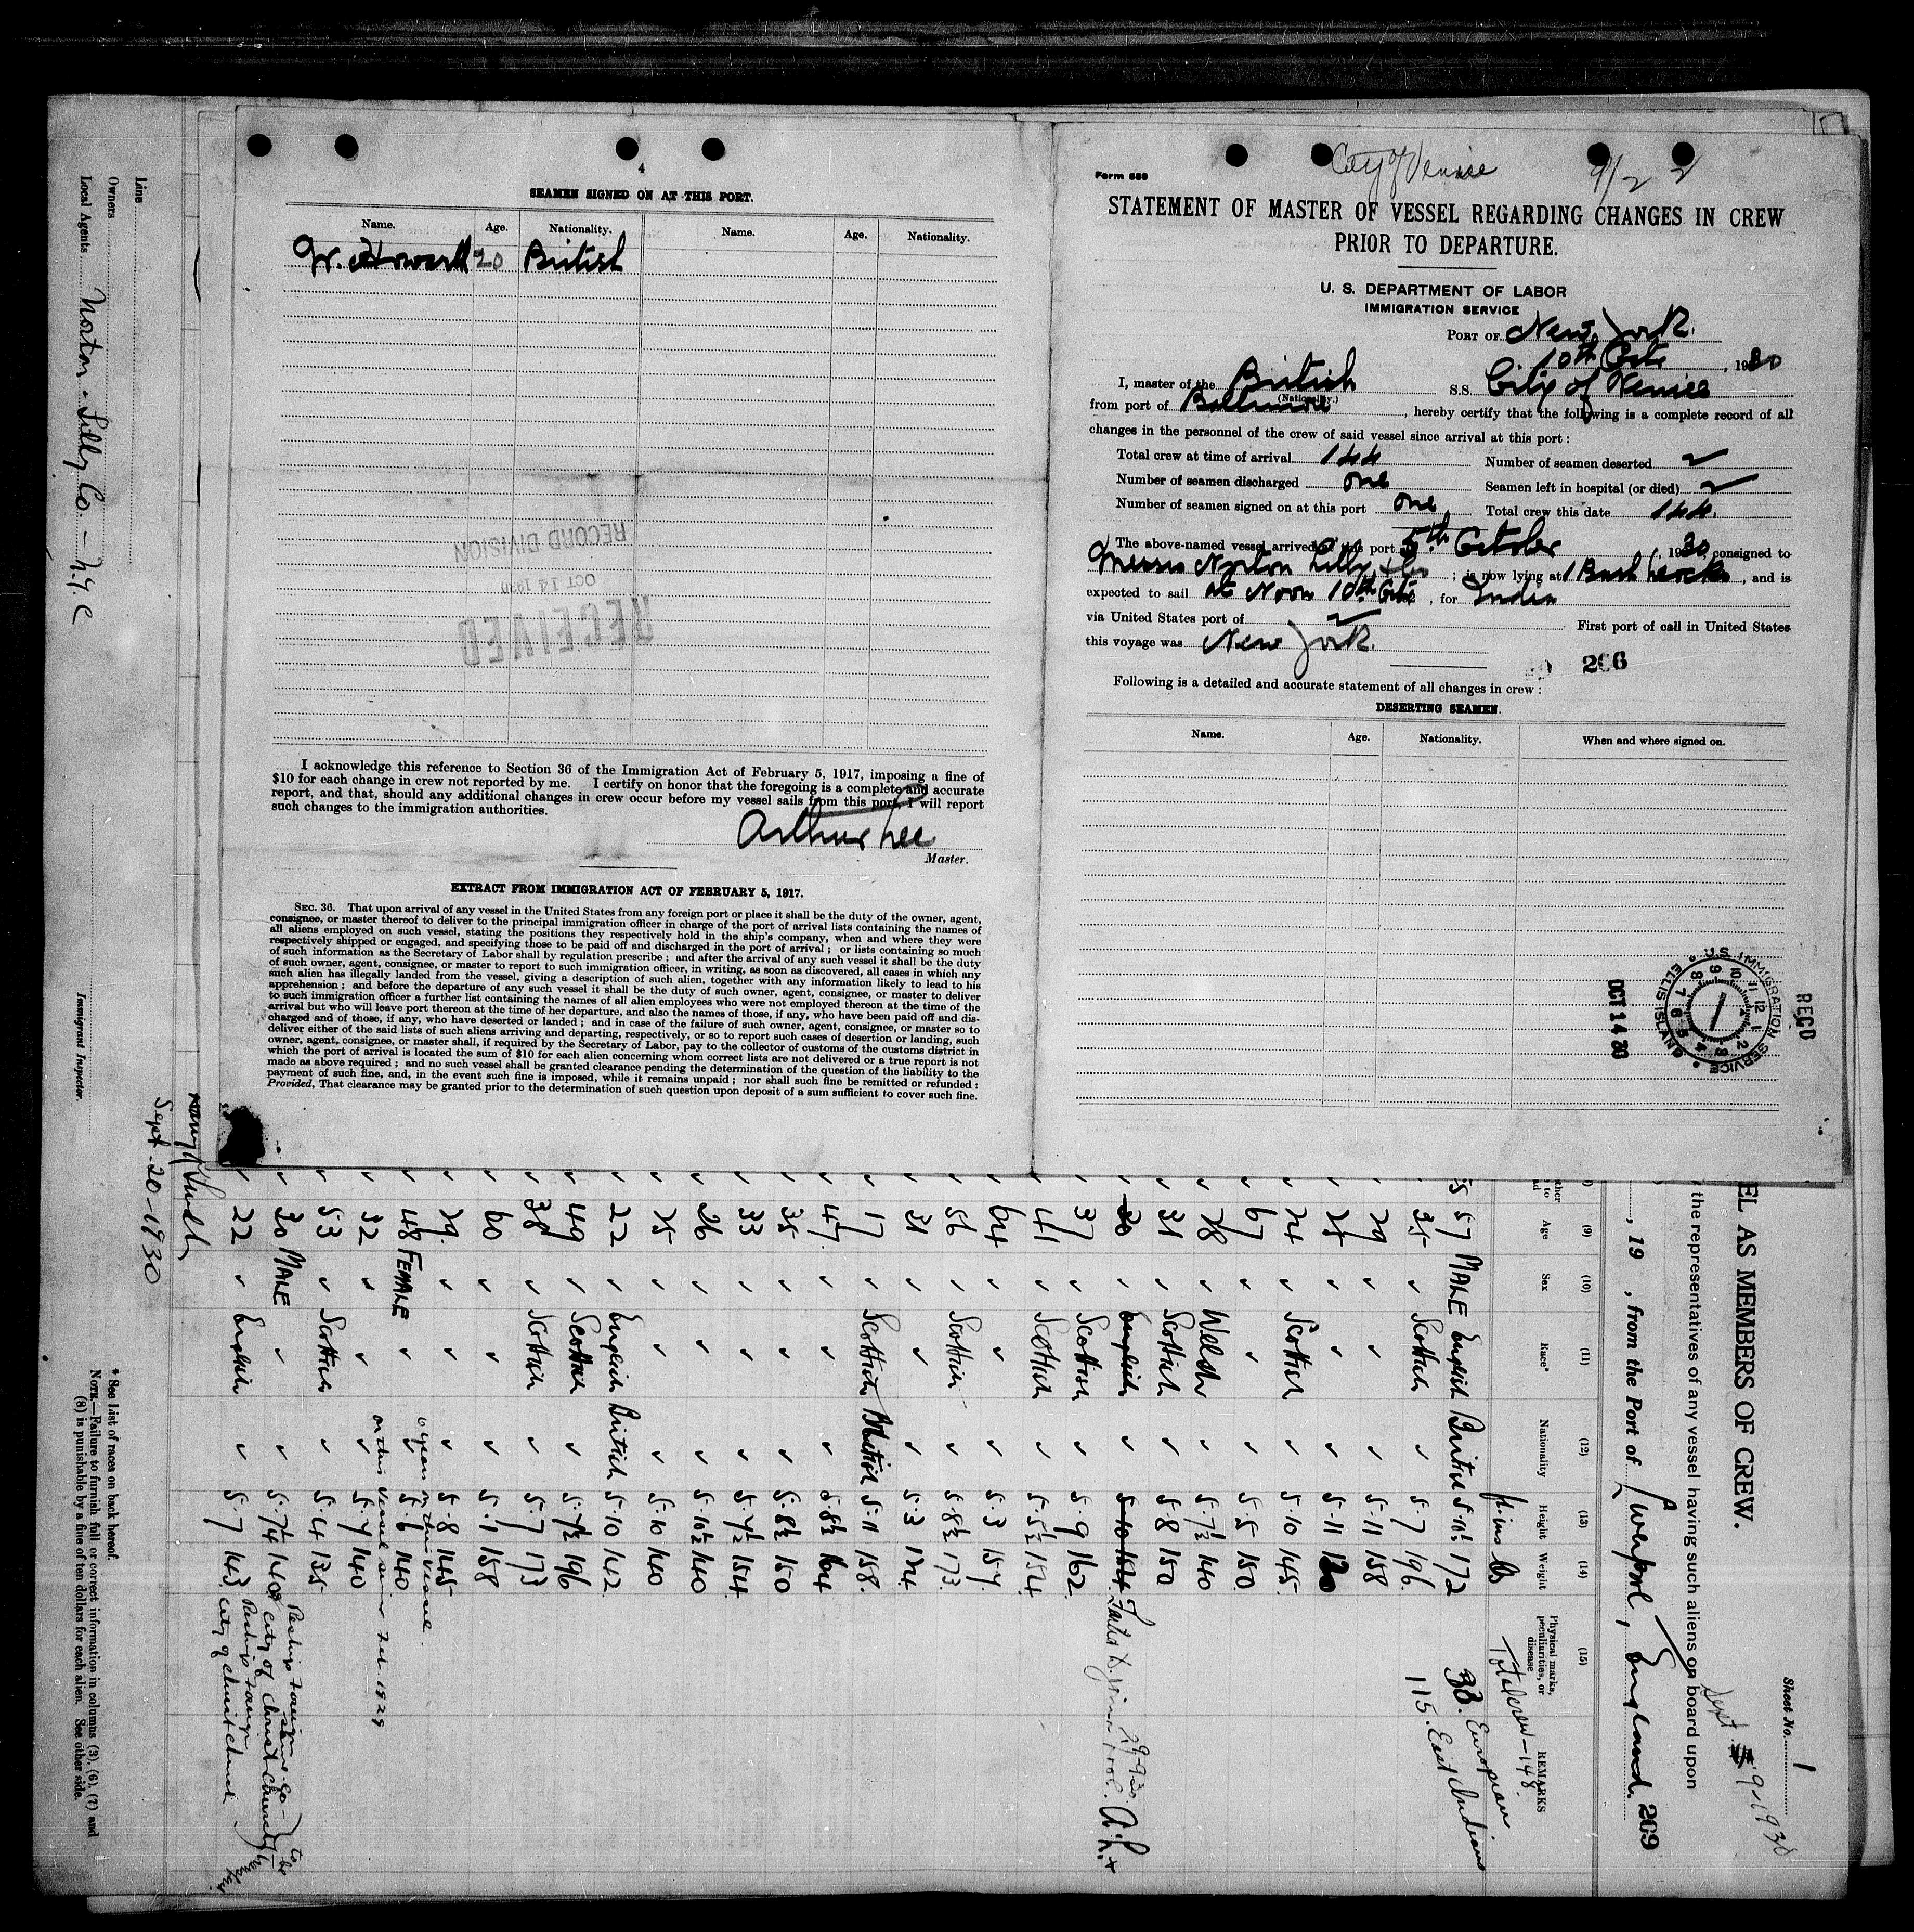 4
SEAMEN SIGNED ON AT THIS PORT.
Name. Age. Nationality. Name. Age. Nationality.
W. Howarth 20 British
RECORD DIVISION
OCT 14 1930
RECEIVED
I acknowledge this reference to Section 36 of the Immigration Act of February 5, 1917, imposing a fine of
$10 for each change in crew not reported by me. I certify on honor that the foregoing is a complete and accurate
report, and that, should any additional changes in crew occur before my vessel sails from this port, I will report
such changes to the immigration authorities.
Arthur Lee
Master.
EXTRACT FROM IMMIGRATION ACT OF FEBRUARY 5, 1917.
SEC. 36. That upon arrival of any vessel in the United States from any foreign port or place it shall be the duty of the owner, agent,
consignee, or master thereof to deliver to the principal immigration officer in charge of the port of arrival lists containing the names of
all aliens employed on such vessel, stating the positions they respectively hold in the ship's company, when and where they were
respectively shipped or engaged, and specifying those to be paid off and discharged in the port of arrival; or lists containing so much
of such information as the Secretary of Labor shall by regulation prescribe; and after the arrival of any such vessel it shall be the duty
of such owner, agent, consignee, or master to report to such immigration officer, in writing, as soon as discovered, all cases in which any
such alien has illegally landed from the vessel, giving a description of such alien, together with any information likely to lead to his
apprehension; and before the departure of any such vessel it shall be the duty of such owner, agent, consignee, or master to deliver
to such immigration officer a further list containing the names of all alien employees who were not employed thereon at the time of the
arrival but who will leave port thereon at the time of her departure, and also the names of those, if any, who have been paid off and dis-
charged and of those, if any, who have deserted or landed; and in case of the failure of such owner, agent, consignee, or master so to
deliver either of the said lists of such aliens arriving and departing, respectively, or so to report such cases of desertion or landing, such
owner, agent, consignee, or master shall, if required by the Secretary of Labor, pay to the collector of customs of the customs district in
which the port of arrival is located the sum of $10 for each alien concerning whom correct lists are not delivered or a true report is not
made as above required; and no such vessel shall be granted clearance pending the determination of the question of the liability to the
payment of such fine, and, in the event such fine is imposed, while it remains unpaid; nor shall such fine be remitted or refunded:
Provided, That clearance may be granted prior to the determination of such question upon deposit of a sum sufficient to cover such fine.
City of Venice 9/22
Form 689
STATEMENT OF MASTER OF VESSEL REGARDING CHANGES IN CREW
PRIOR TO DEPARTURE.
U. S. DEPARTMENT OF LABOR
IMMIGRATION SERVICE
PORT OF New York.
10th Octr, 1930
I, master of the British S.S. City of Venice
(Nationality.)
from port of Baltimore, hereby certify that the following is a complete record of all
changes in the personnel of the crew of said vessel since arrival at this port:
Total crew at time of arrival 144 Number of seamen deserted
Number of seamen discharged one Seamen left in hospital (or died)
Number of seamen signed on at this port one Total crew this date 144.
The above-named vessel arrived at this port 5th October, 1930, consigned to
Messrs Norton Lilly & Co; is now lying at Bush Docks, and is
expected to sail at Noon 10th Octr, for India
via United States port of First port of call in United States
this voyage was New York.
206
Following is a detailed and accurate statement of all changes in crew:
DESERTING SEAMEN.
Name. Age. Nationality. When and where signed on.
REC'D
U.S. IMMIGRATION SERVICE ELLIS ISLAND
OCT 14 30
Sheet No. 1
Sept 9-1930
EL AS MEMBERS OF CREW.
the representatives of any vessel having such aliens on board upon
, 19 , from the Port of Liverpool, England. 209
(9) (10) (11) (12) (13) (14) (15)
Age Sex Race* Nationality Height Weight Physical marks, peculiarities, or disease REMARKS
ft ins lbs Total crew-148
57 MALE English British 5.10½ 172 33. European
35 Scottish 5.7 196. 115. East Indians
29 5.11 158
24 5.11 120
24 Scottish 5.10 145.
67 5.5 150.
28 Welsh 5.7½ 140
31 Scottish 5.8 150
20 English 5.10 154 Failed to join 29-9-30. A.L.
37 Scottish 5.9 162
41 Scottish 5.5½ 154
64 5.3 157.
56 Scottish 5.8½ 173.
31 5.3 124.
17 Scottish British 5.11 158.
47 5.8½ 164
35 5.8½ 150
33 5.7½ 154.
26 5.10½ 140
25 5.10 140
22 English British 5.10 142
49 Scottish 5.7½ 196
38 Scottish 5.7 173
60 5.1 158
29. 5.8 145
48 FEMALE 5.6 140 years in this vessel.
32 5.7 140 in this vessel since Feb. 1929
53 Scottish 5.4 135
30 MALE 5.7¼ 140 City of Christchurch
22 English 5.7 143. City of Christchurch
Sept-20-1930
Immigrant Inspector.
* See List of races on back hereof.
NOTE.—Failure to furnish full or correct information in columns (3), (6), (7) and
(8) is punishable by a fine of ten dollars for each alien. See other side.
Line
Owners
Local Agents Norton-Lilly Co. - N.Y.C